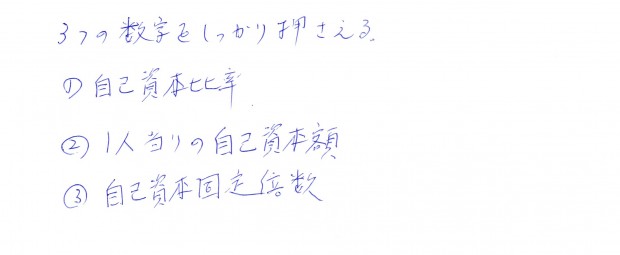 3つの数字をしっかり押さえる.
① 自己資本比率
② 1人当りの自己資本額
③ 自己資本固定倍数